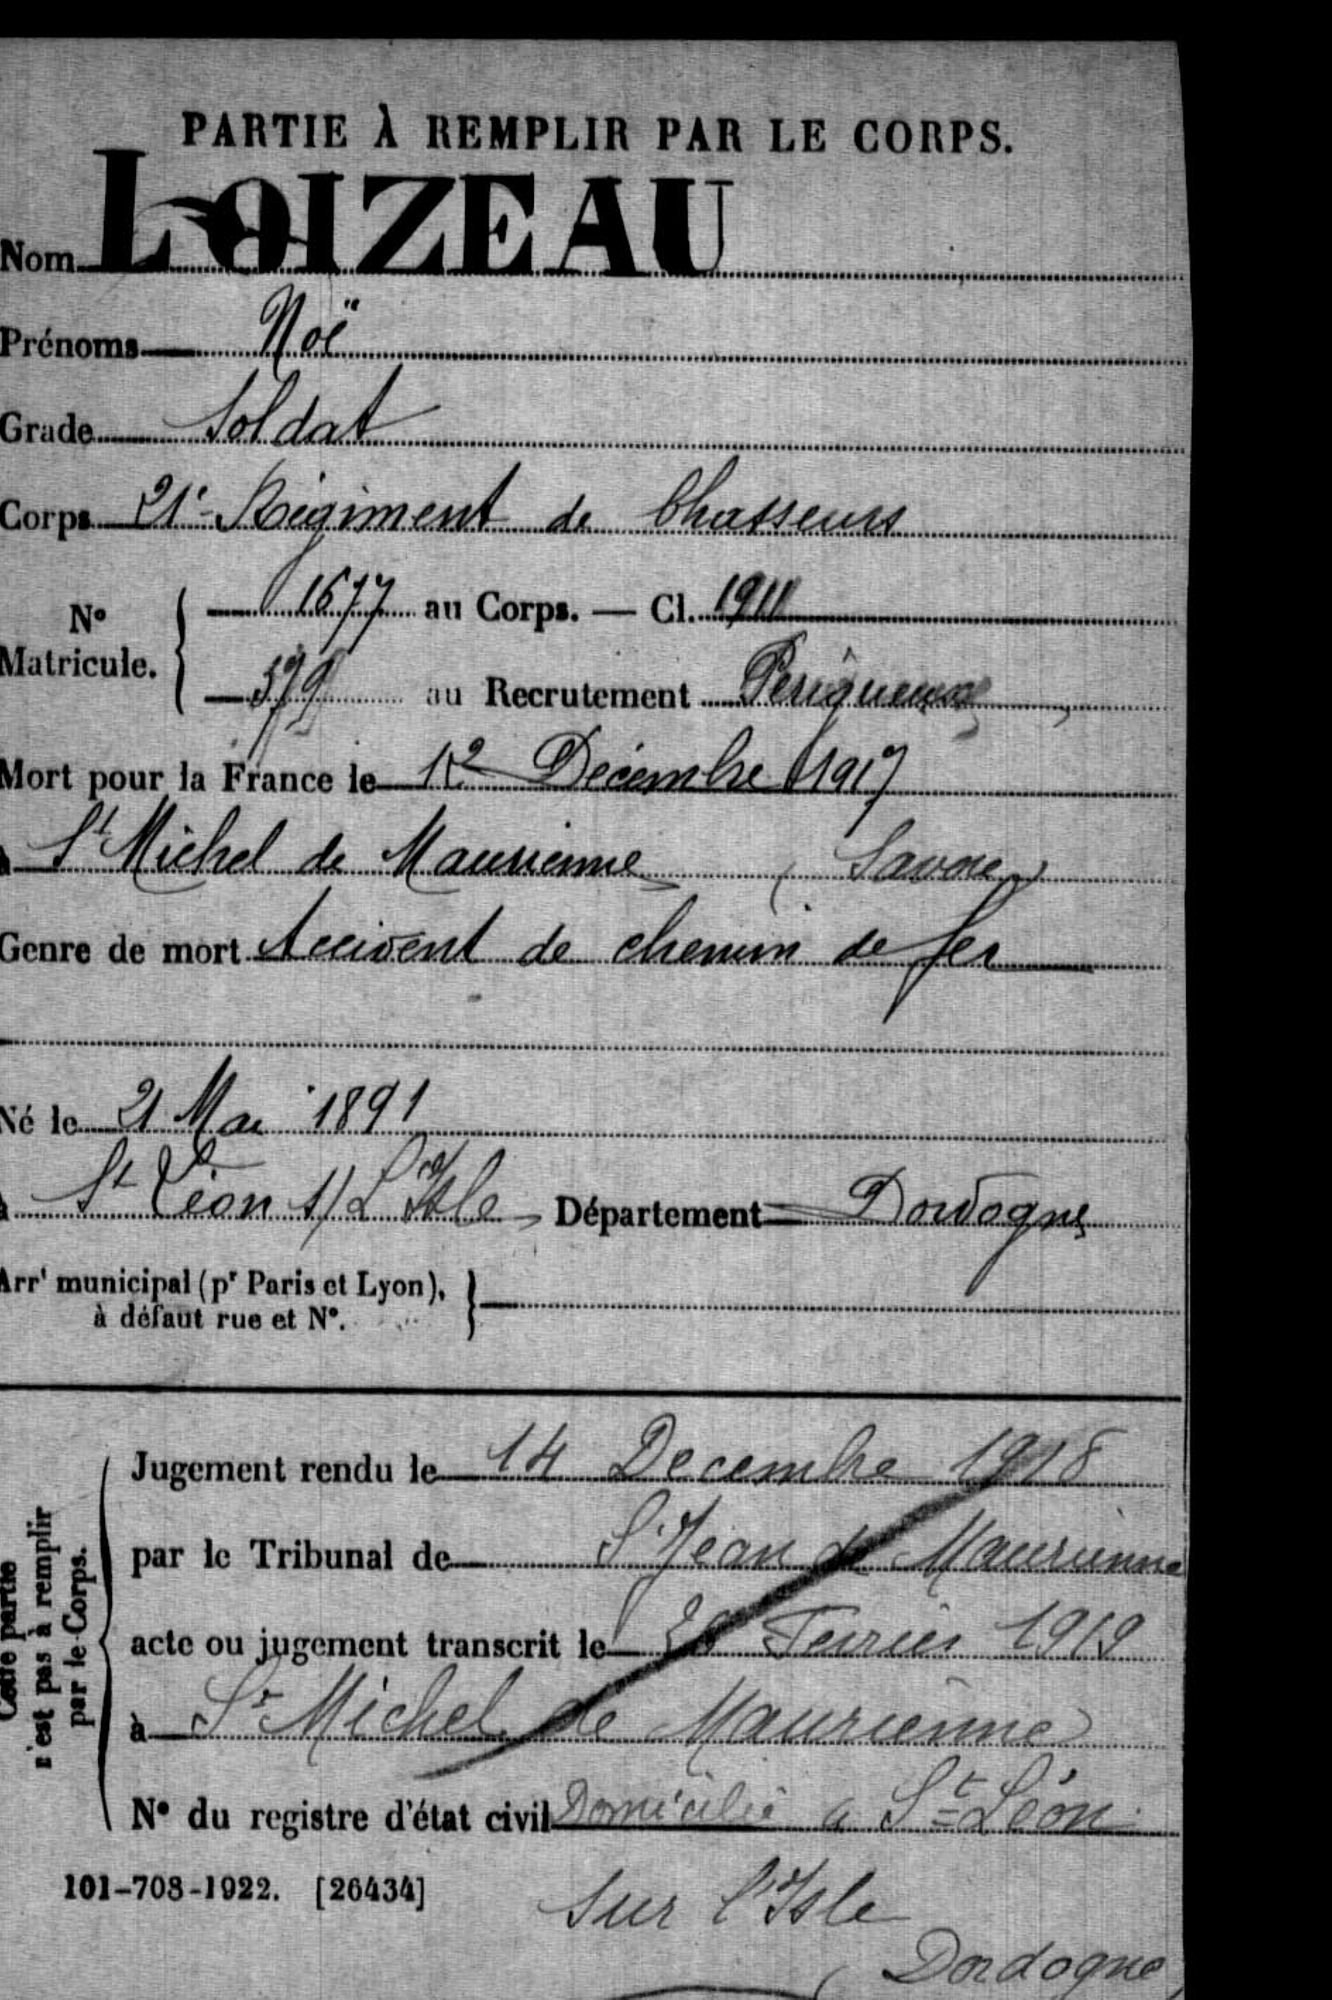 PARTIE À REMPLIR PAR LE CORPS.
Nom LOIZEAU
Prénoms Noë
Grade Soldat
Corps 21e Régiment de Chasseurs
N° Matricule.
1677 au Corps. — Cl. 1911
579 au Recrutement Périgueux
Mort pour la France le 12 Décembre 1917
à St Michel de Maurienne (Savoie)
Genre de mort Accident de chemin de fer
Né le 21 Mai 1891
à St Léon s/ L'Isle Département Dordogne
Arrt municipal (pr Paris et Lyon),
à défaut rue et N°.
Cette partie
n'est pas à remplir
par le Corps.
Jugement rendu le 14 Decembre 1918
par le Tribunal de St Jean de Maurienne
acte ou jugement transcrit le Fevrier 1919
à St Michel de Maurienne
N° du registre d'état civil Domicilié a St Léon
101-708-1922. [26434]
sur l'Isle
(Dordogne)